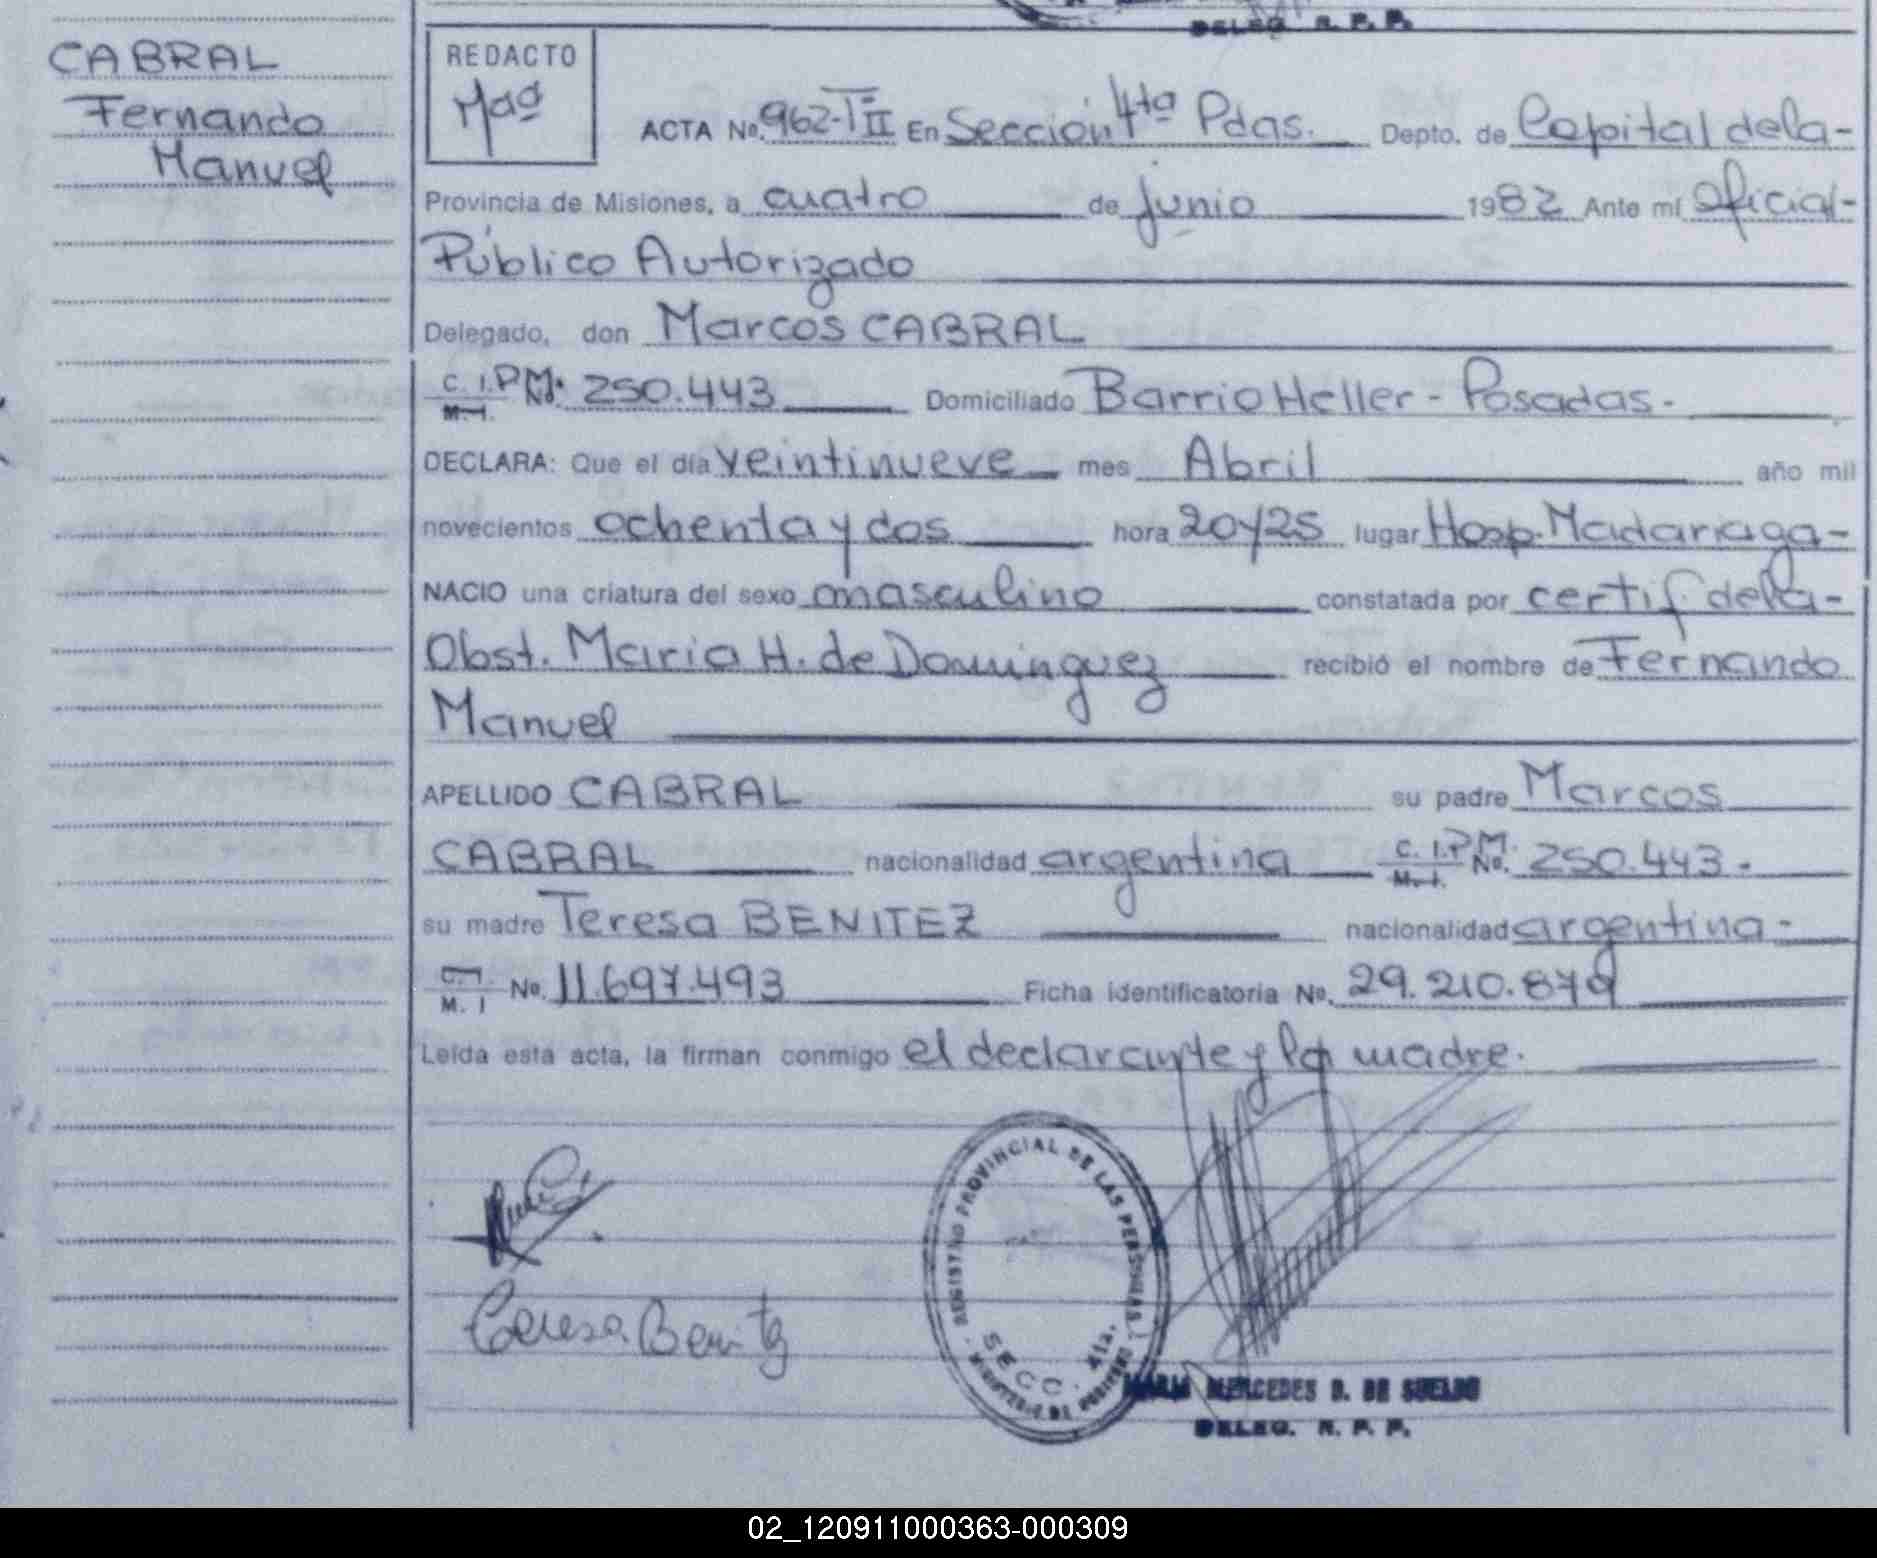 DELEG. R. P. P.
CABRAL
Fernando
Manuel
REDACTO
Maa
ACTA No. 962-TºII En Sección 4ta Pdas. Depto. de Capital de la-
Provincia de Misiones, a cuatro de junio 1982 Ante mí Oficial-
Público Autorizado
Delegado, don Marcos CABRAL
C. I. P M. No. 250.443 Domiciliado Barrio Heller - Posadas.
M. I.
DECLARA: Que el día veintinueve mes Abril año mil
novecientos ochenta y dos hora 20y25 lugar Hosp. Madariaga-
NACIO una criatura del sexo masculino constatada por certif de la-
Obst. Maria H. de Dominguez recibió el nombre de Fernando
Manuel
APELLIDO CABRAL su padre Marcos
CABRAL nacionalidad argentina C. I. P M. No. 250.443.
M. I.
su madre Teresa BENITEZ nacionalidad argentina-
C. I. No. 11.697.493 Ficha identificatoria No. 29.210.879
M. I
Leída esta acta, la firman conmigo el declarante y la madre.
REGISTRO PROVINCIAL DE LAS PERSONAS
SECC. 4ta.
MINISTERIO DE GOBIERNO
Teresa Benitez
MARIA MERCEDES D. DE SUELDO
DELEG. R. P. P.
02_120911000363-000309